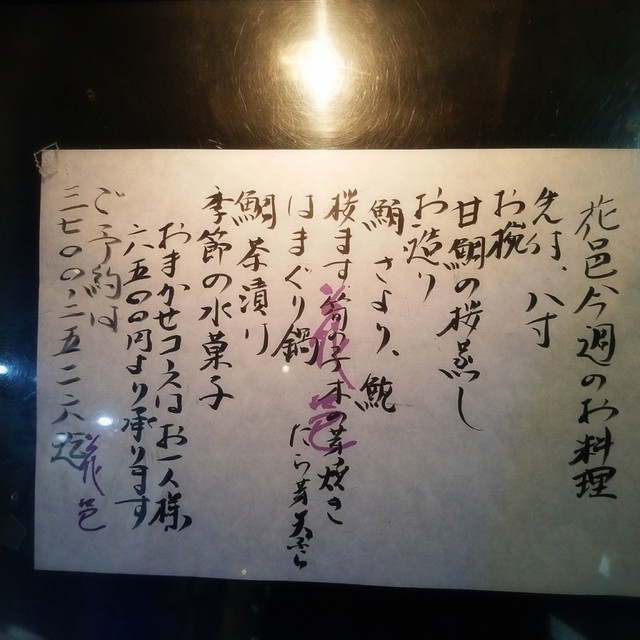 花邑今週のお料理
先付、八寸
お椀
甘鯛の桜蒸し
お造り
鮪 さより、鮑
桜ます 筍の子木の芽焼き
はまぐり鍋 たら芽天ぷら
鯛茶漬り
季節の水菓子
おまかせコースはお一人様
六五〇〇円より承ります
ご予約は
三七〇〇、二五二六迄
花邑
花邑